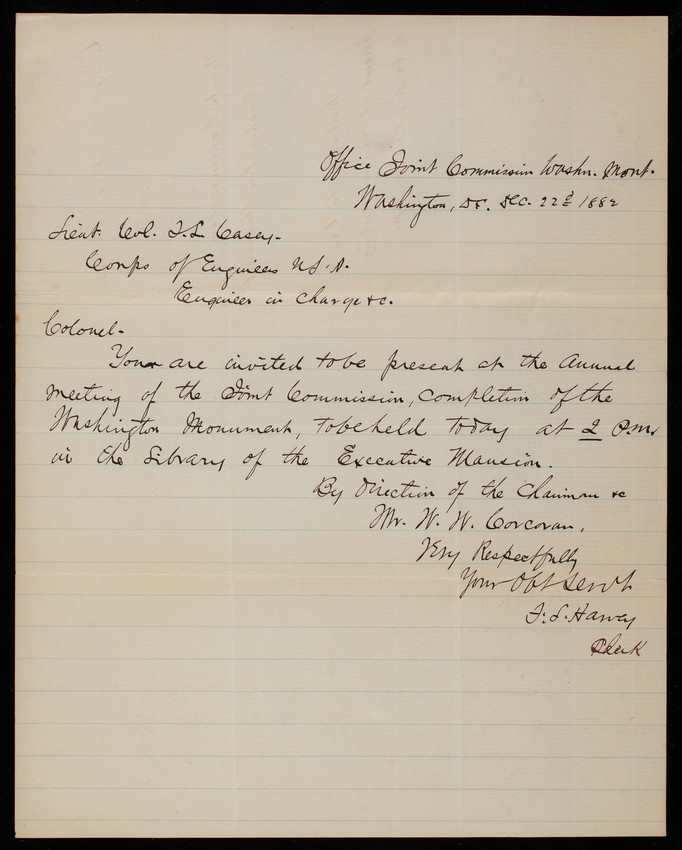 Office Joint Commission Washn. Mont.
Washington, DC. Dec. 22d 1882
Lieut. Col. T. L. Casey.
Corps of Engineers U.S.A.
Engineer in charge &c.
Colonel.
You are invited to be present at the Annual
meeting of the Joint Commission, completion of the
Washington Monument, to be held today at 2 P.M.
in the Library of the Executive Mansion.
By Direction of the Chairman &c
Mr. W. W. Corcoran,
Very Respectfully
Your Obt Servt
F. L. Harvey
Clerk